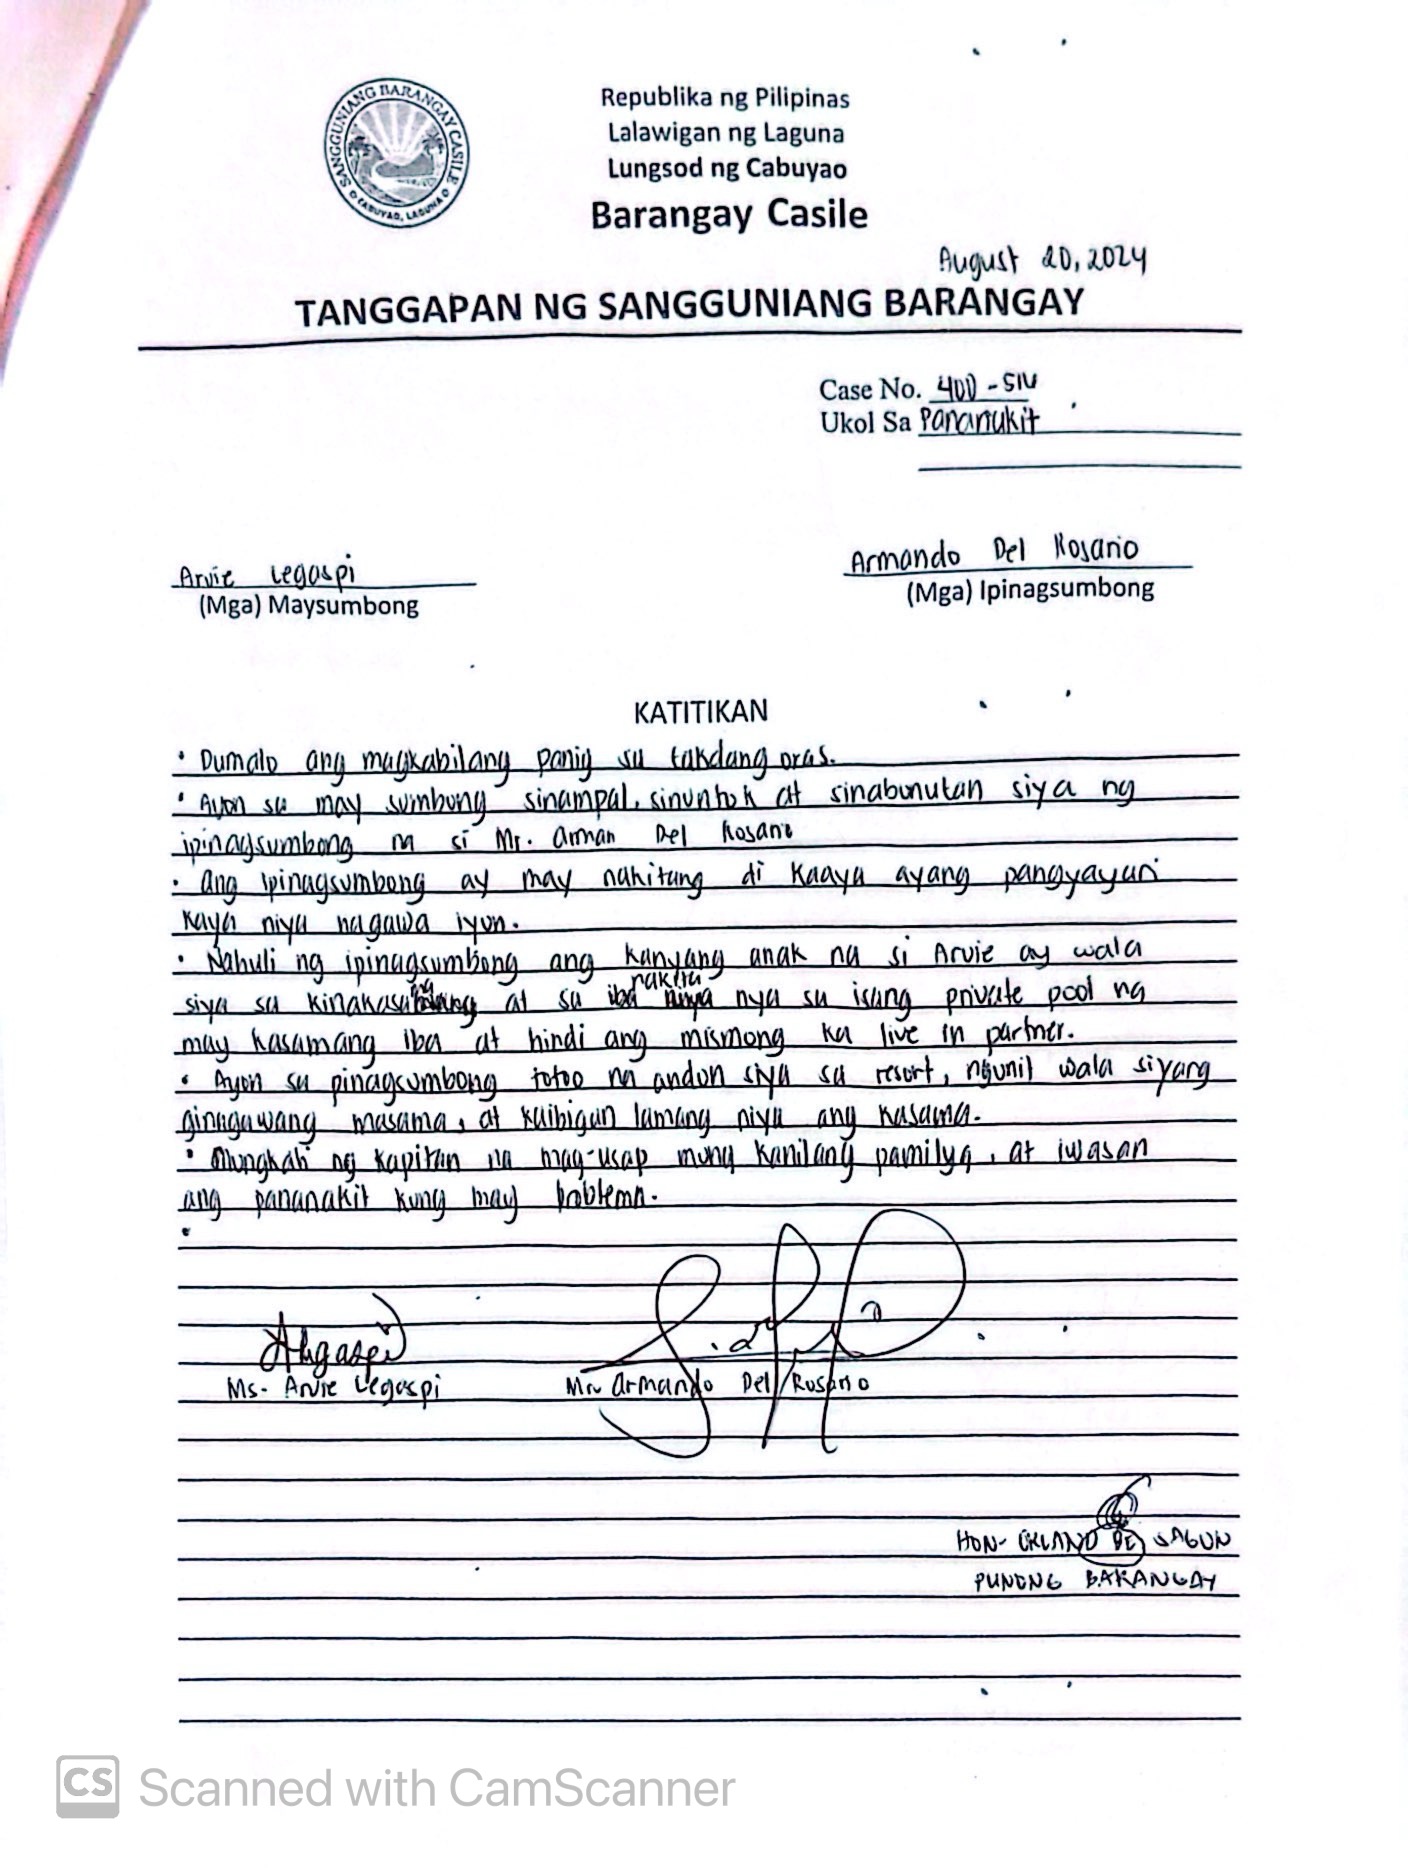 SANGGUNIANG BARANGAY CASILE
CABUYAO, LAGUNA
Republika ng Pilipinas
Lalawigan ng Laguna
Lungsod ng Cabuyao
Barangay Casile
August 20, 2024
TANGGAPAN NG SANGGUNIANG BARANGAY
Case No. 400 - SIV
Ukol Sa Pananakit
Arvie Legaspi
(Mga) Maysumbong
Armando Del Rosario
(Mga) Ipinagsumbong
KATITIKAN
• Dumalo ang magkabilang panig sa takdang oras.
• Ayon sa may sumbong sinampal, sinuntok at sinabunutan siya ng
ipinagsumbong na si Mr. Arman Del Rosario
• Ang ipinagsumbong ay may nakitang di kaaya ayang pangyayari
kaya niya nagawa iyon.
• Nahuli ng ipinagsumbong ang kanyang anak na si Arvie ay wala
siya sa at sa iba nakita nya sa isang private pool ng
may kasamang iba at hindi ang mismong ka live in partner.
• Ayon sa pinagsumbong totoo na andon siya sa resort, ngunit wala siyang
ginagawang masama, at kaibigan lamang niya ang kasama.
• Mungkahi ng kapitan na mag-usap muna kanilang pamilya, at iwasan
ang pananakit kung may problema.
•
Ms. Arvie Legaspi
Mr. Armando Del Rosario
HON. ORLANDO DE SAGUN
PUNONG BARANGAY
CS Scanned with CamScanner